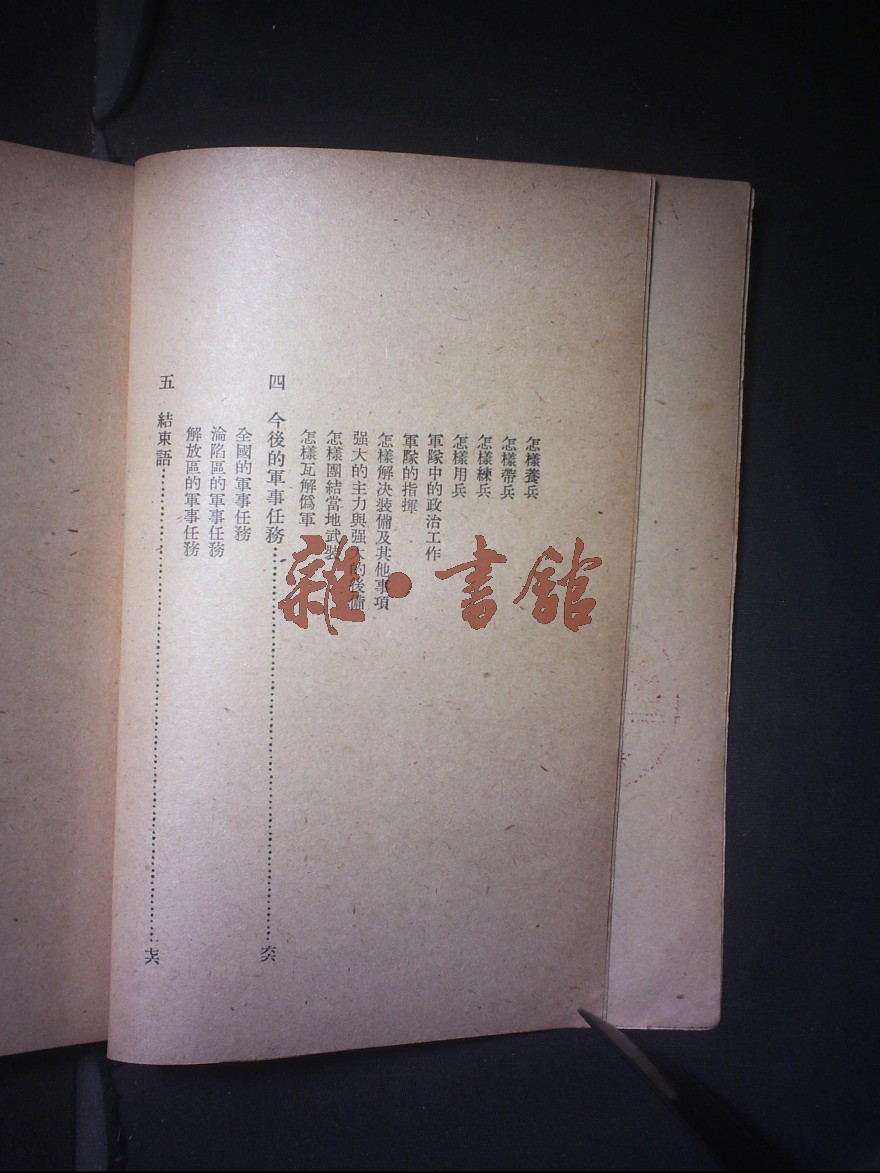 怎樣養兵
怎樣帶兵
怎樣練兵
怎樣用兵
軍隊中的政治工作
軍隊的指揮
怎樣解决裝備及其他事項
强大的主力與强大的後備
怎樣團結當地武裝
怎樣瓦解僞軍
四 今後的軍事任務…………六六
全國的軍事任務
淪陷區的軍事任務
解放區的軍事任務
五 結束語…………七六
雜·書館